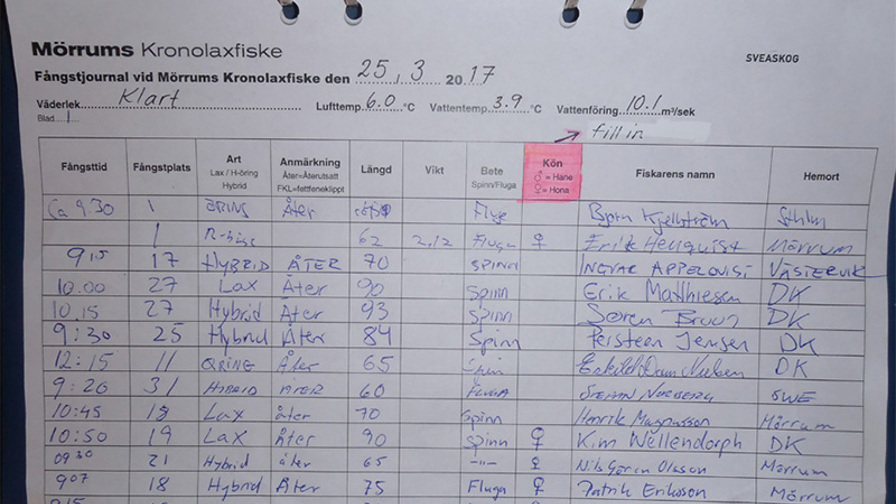 Mörrums Kronolaxfiske
SVEASKOG
Fångstjournal vid Mörrums Kronolaxfiske den 25, 3 2017
Väderlek Klart Lufttemp. 6.0 °C Vattentemp. 3.9 °C Vattenföring 10.1 m³/sek
Blad 1
fill in
Fångsttid Fångstplats Art Lax / H-öring Hybrid Anmärkning Åter=Återutsatt FKL=fettfeneklippt Längd Vikt Bete Spinn/Fluga Kön ♂ = Hane ♀ = Hona Fiskarens namn Hemort
Ca 9.30 1 ÖRING Åter Fluge Bjørn Kjellström Sthlm
1 62 2,12 Fluga ♀ Erik Henquist Mörrum
9 15 17 HYBRID ÅTER 70 SPINN INGVAR APPELQVIST VÄSTERVIK
10.00 27 Lax Åter 90 Spinn Erik Matthiessen DK
10.15 27 Hybrid Åter 93 Spinn Søren Bruun DK
9:30 25 Hybrid Åter 84 Spinn Torsteen Jensen DK
12:15 11 ÖRING Åter 65 Spin Eskild Dam Nielsen DK
9:20 31 HYBRID ÅTER 60 FLUGA STEFAN NORBERG SWE
10:45 18 Lax åter 70 Spinn Henrik Magnusson Mörrum
10:50 19 Lax Åter 90 Spinn ♀ Kim Wellendorph DK
09 30 21 Hybrid åter 65 -"- ♀ Nils Göran Olsson Mörrum
9 07 18 Hybrid Åter 75 Fluga ♀ Patrik Eriksson Mörrum